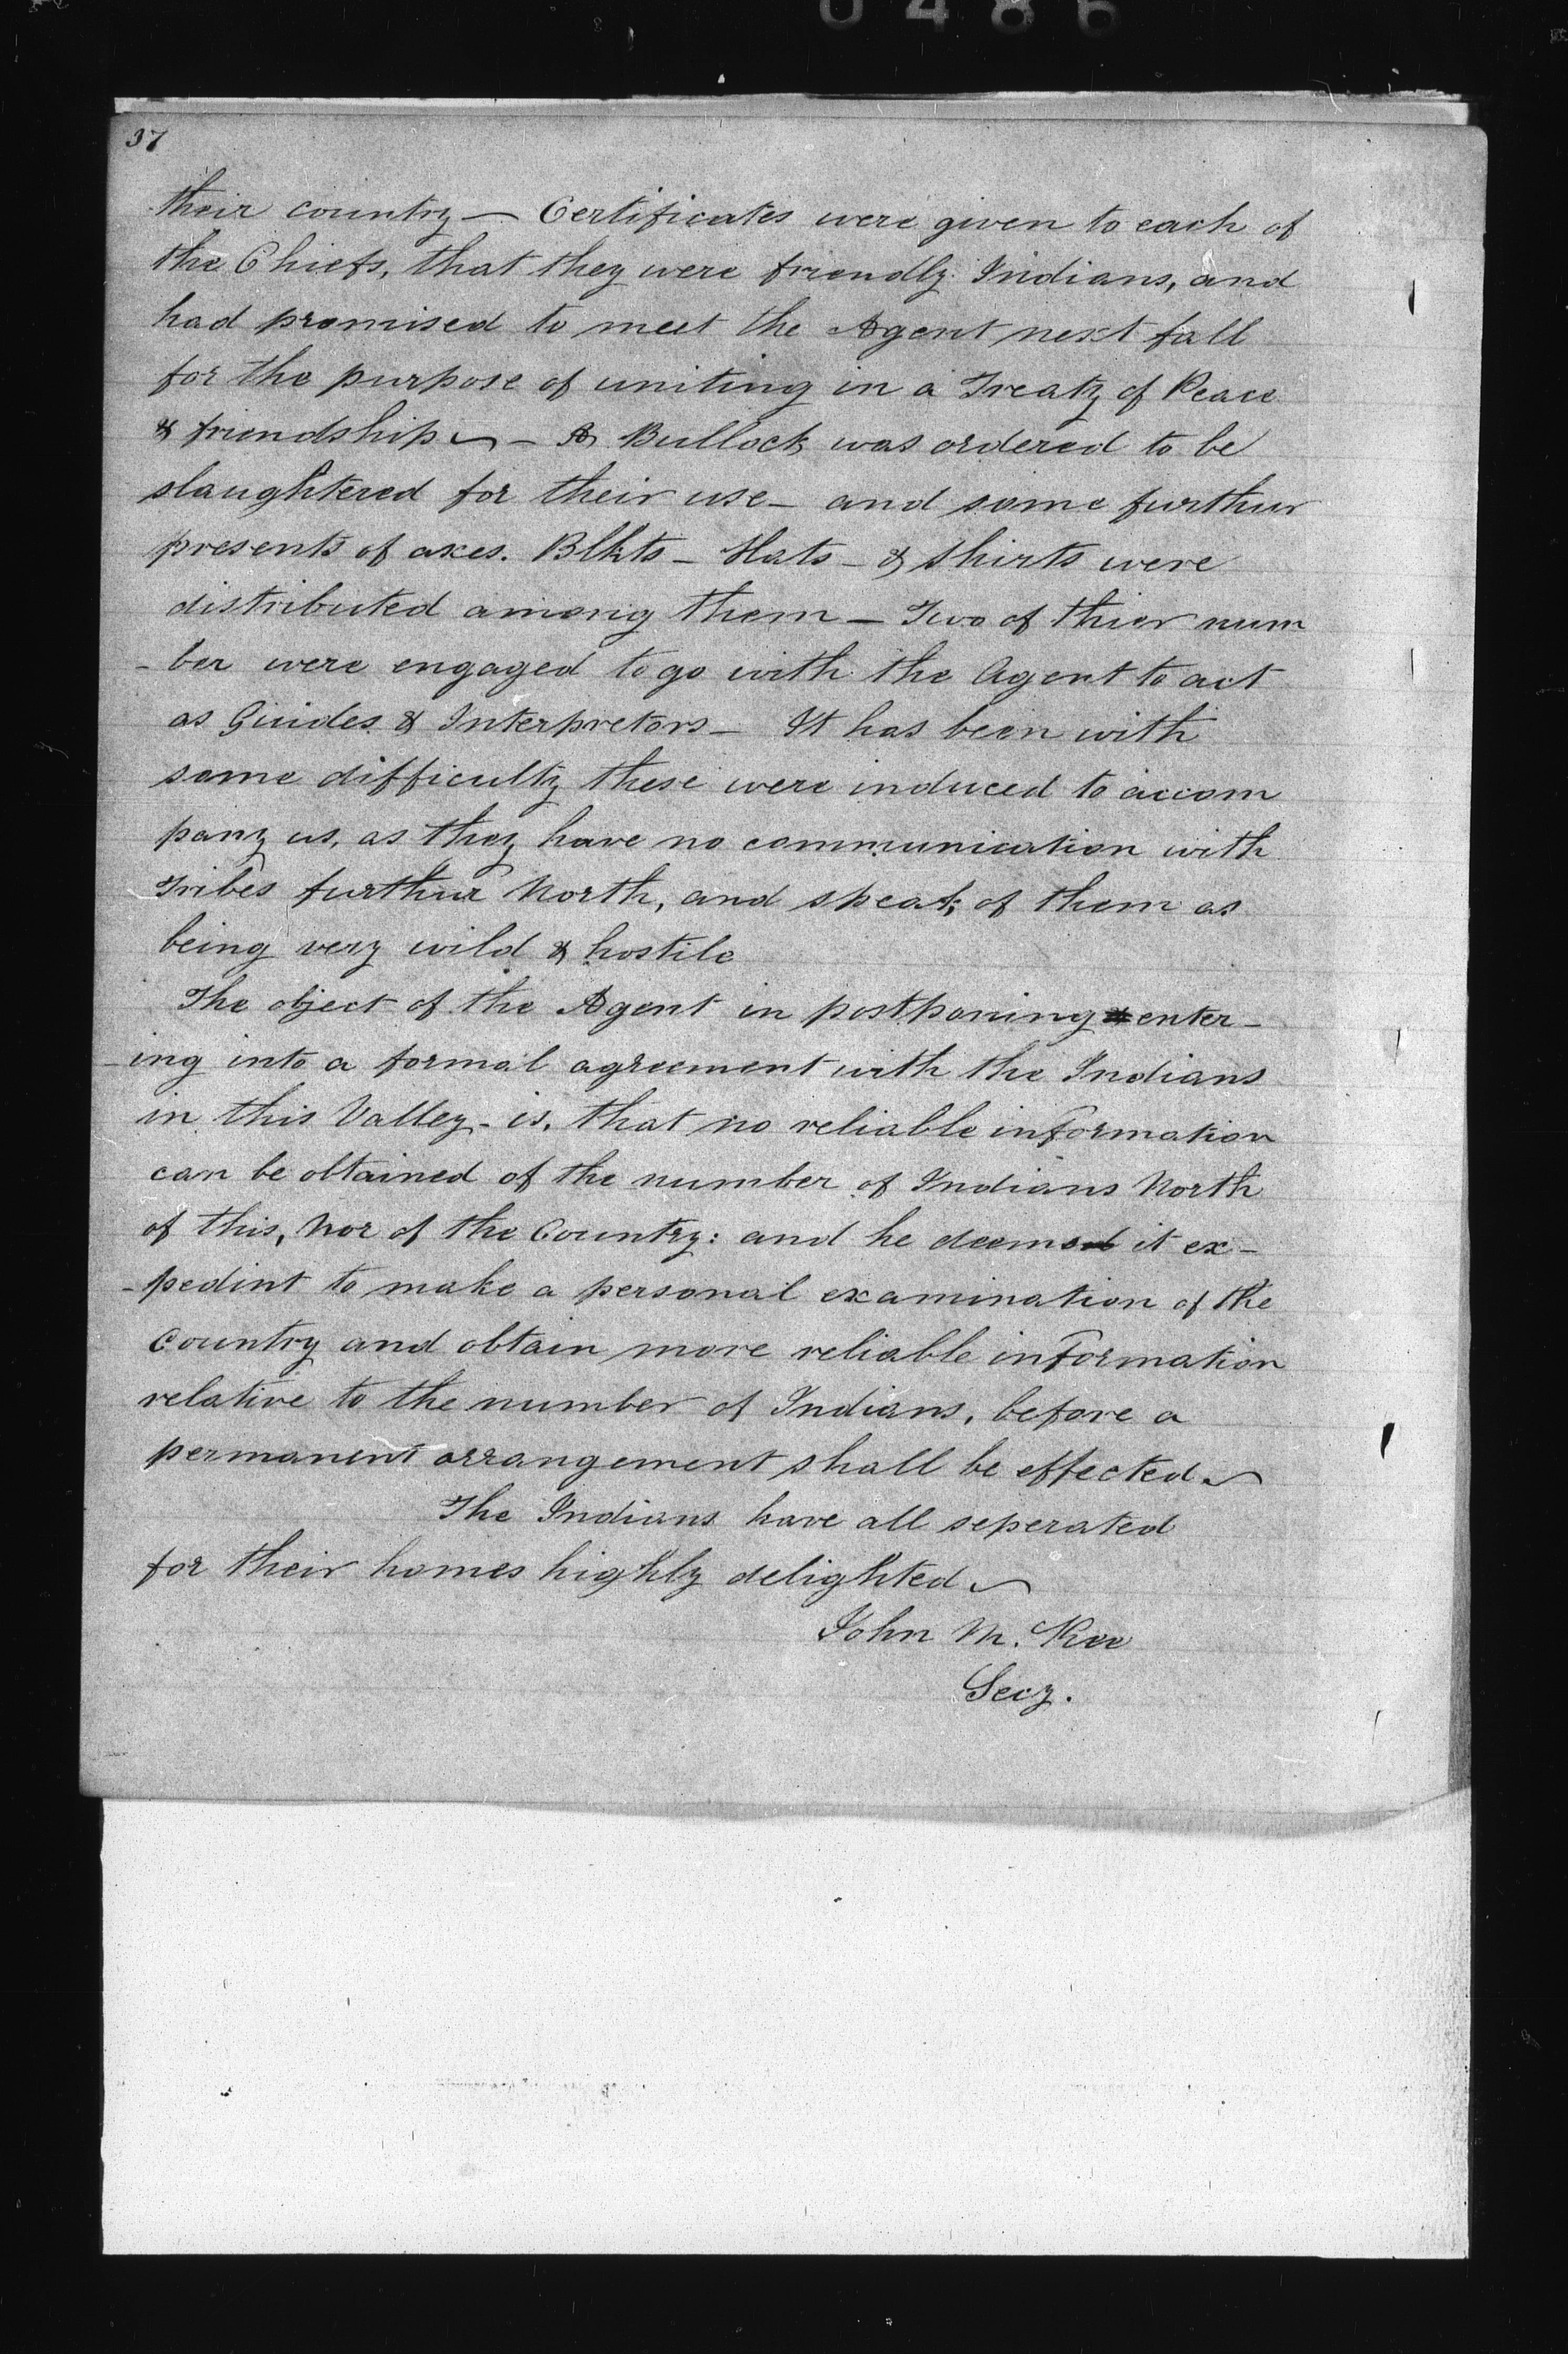 0486
37
their country — Certificates were given to each of
the Chiefs, that they were friendly Indians, and
had promised to meet the Agent next fall
for the purpose of uniting in a Treaty of Peace
& friendship — A Bullock was ordered to be
slaughtered for their use — and some furthur
presents of axes. Blkts — Hats — & shirts were
distributed among them — Two of thier num
- ber were engaged to go with the Agent to act
as Guides & Interpretors — It has been with
some difficulty these were induced to accom
pany us, as they have no communication with
Tribes furthur North, and speak of them as
being very wild & hostile
The object of the Agent in postponing enter-
-ing into a formal agreement with the Indians
in this Valley - is, that no reliable information
can be obtained of the number of Indians North
of this, Nor of the Country: and he deemed it ex-
-pedint to make a personal examination of the
Country and obtain more reliable information
relative to the number of Indians, before a
permanent arrangement shall be effected
The Indians have all seperated
for their homes highly delighted
John M. Kee
Secy.